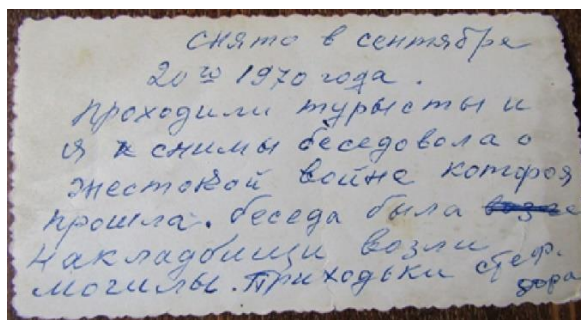 снято в сентябре
20 го 1970 года.
проходили турысты и
я снимы беседовола о
жестокой войне которая
прошла. беседа была
накладбищи возли
могилы. Приходьки